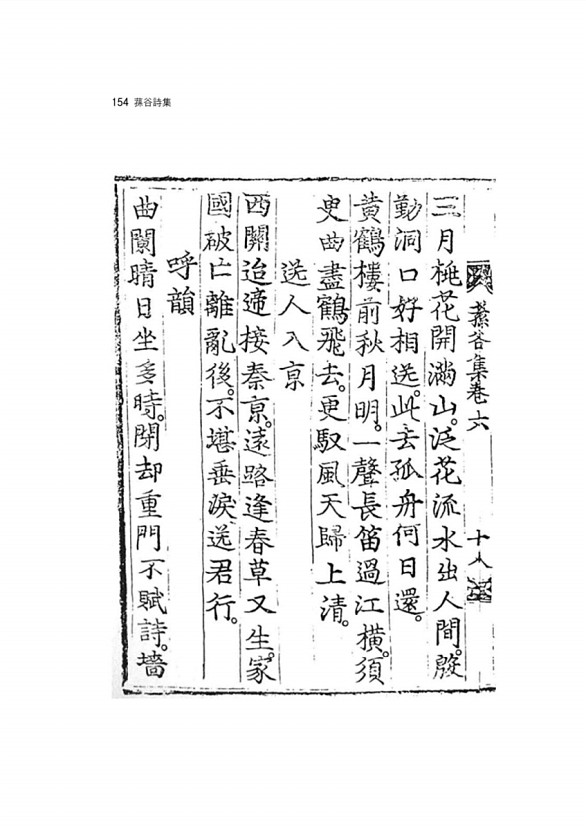 154 蓀谷詩集
蓀谷集卷六
十八
三月桃花開滿山。泛花流水出人間。殷
勤洞口好相送。此去孤舟何日還。
黃鶴樓前秋月明。一聲長笛過江橫。須
臾曲盡鶴飛去。更馭風天歸上清。
送人入京
西關迢遞接秦京。遠路逢春草又生。家
國破亡離亂後。不堪垂淚送君行。
呼韻
曲闌晴日坐多時。閉却重門不賦詩。墻